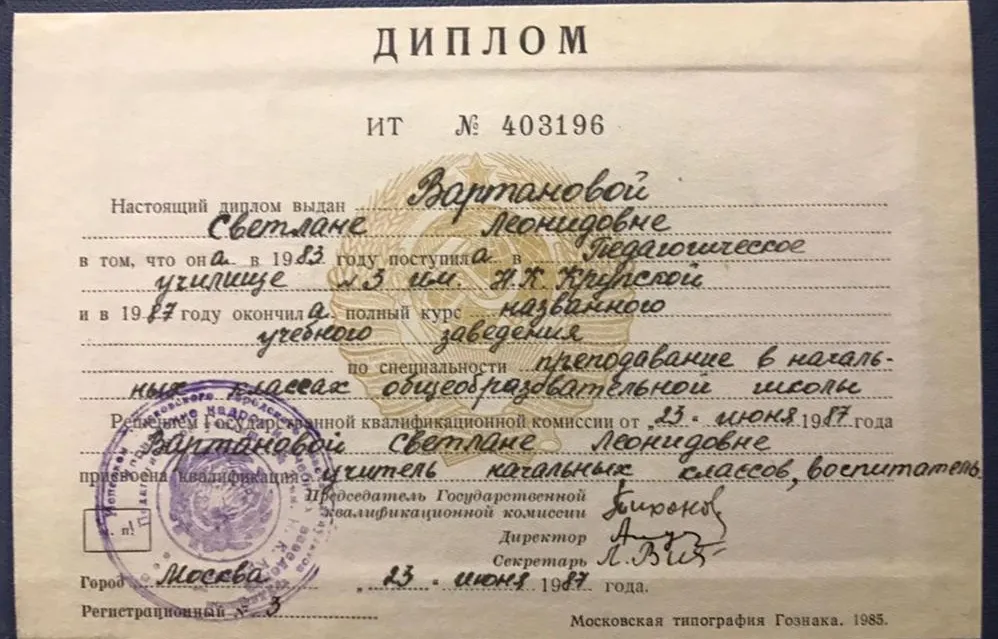 ДИПЛОМ
ИТ № 403196
Настоящий диплом выдан Вартановой
Светлане Леонидовне
в том, что она в 1983 году поступила в Педагогическое
училище №3 им. Н.К. Крупской
и в 1987 году окончила полный курс названного
учебного заведения
по специальности преподавание в началь-
ных классах общеобразовательной школы
Решением Государственной квалификационной комиссии от "23" июня 1987 года
Вартановой Светлане Леонидовне
присвоена квалификация учитель начальных классов, воспитатель
Председатель Государственной
квалификационной комиссии Тихонов
Директор
Секретарь
п!
Город Москва "23" июня 1987 года.
Регистрационный № 3
Московская типография Гознака. 1985.